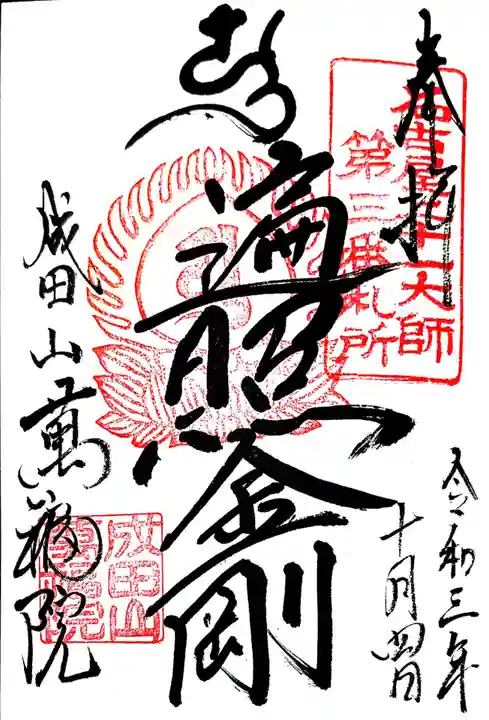 奉拝
名古屋二十一大師
第三番札所
令和三年
十月四日
遍照金剛
成田山萬福院
成田山
萬福院